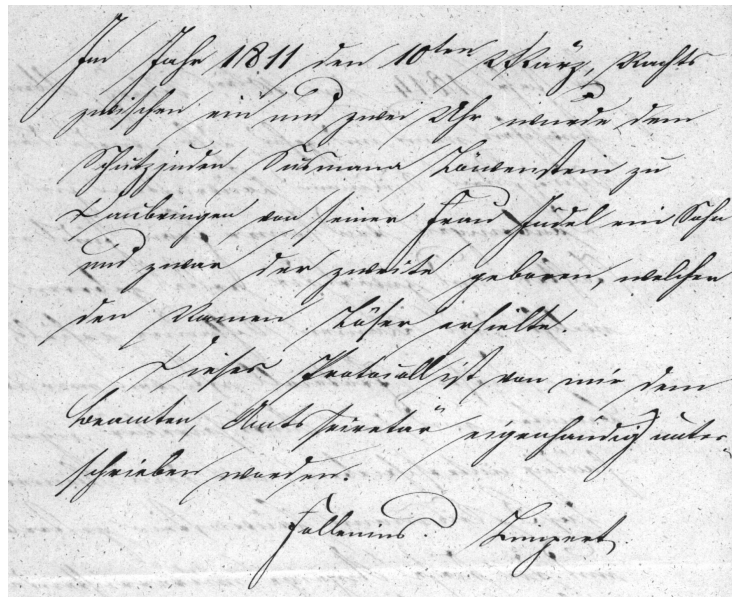 Im Jahr 1811 den 10ten März, Nachts
zwischen ein und zwei Uhr wurde dem
Schutzjuden Susmann Löwenstein zu
Laubringen von seiner Frau Jüdel ein Sohn
und zwar der zweite geboren, welcher
den Namen Löser erhielte.
Dieses Protocoll ist von mir dem
Beamten, Amts Secretär eigenhändig unter-
schrieben worden.
Follenius. Limpert